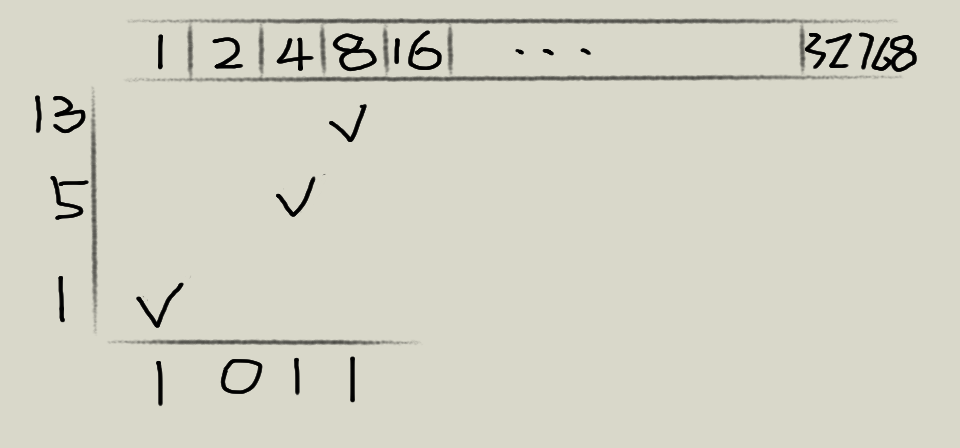 1 2 4 8 16 ... 32768
13 ✓
5 ✓
1 ✓
1 0 1 1